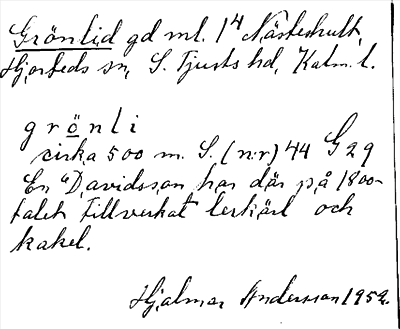 Grönlid gd ml. 1⁴ Nästeshult,
Hjorteds sn, S. Tjusts hd, Kalm. l.
grönli
cirka 500 m. S. (n:r) 44 G 29
En "Davidsson har där på 1800-
talet tillverkat lerkärl och
kakel.
Hjalmar Andersson 1952.